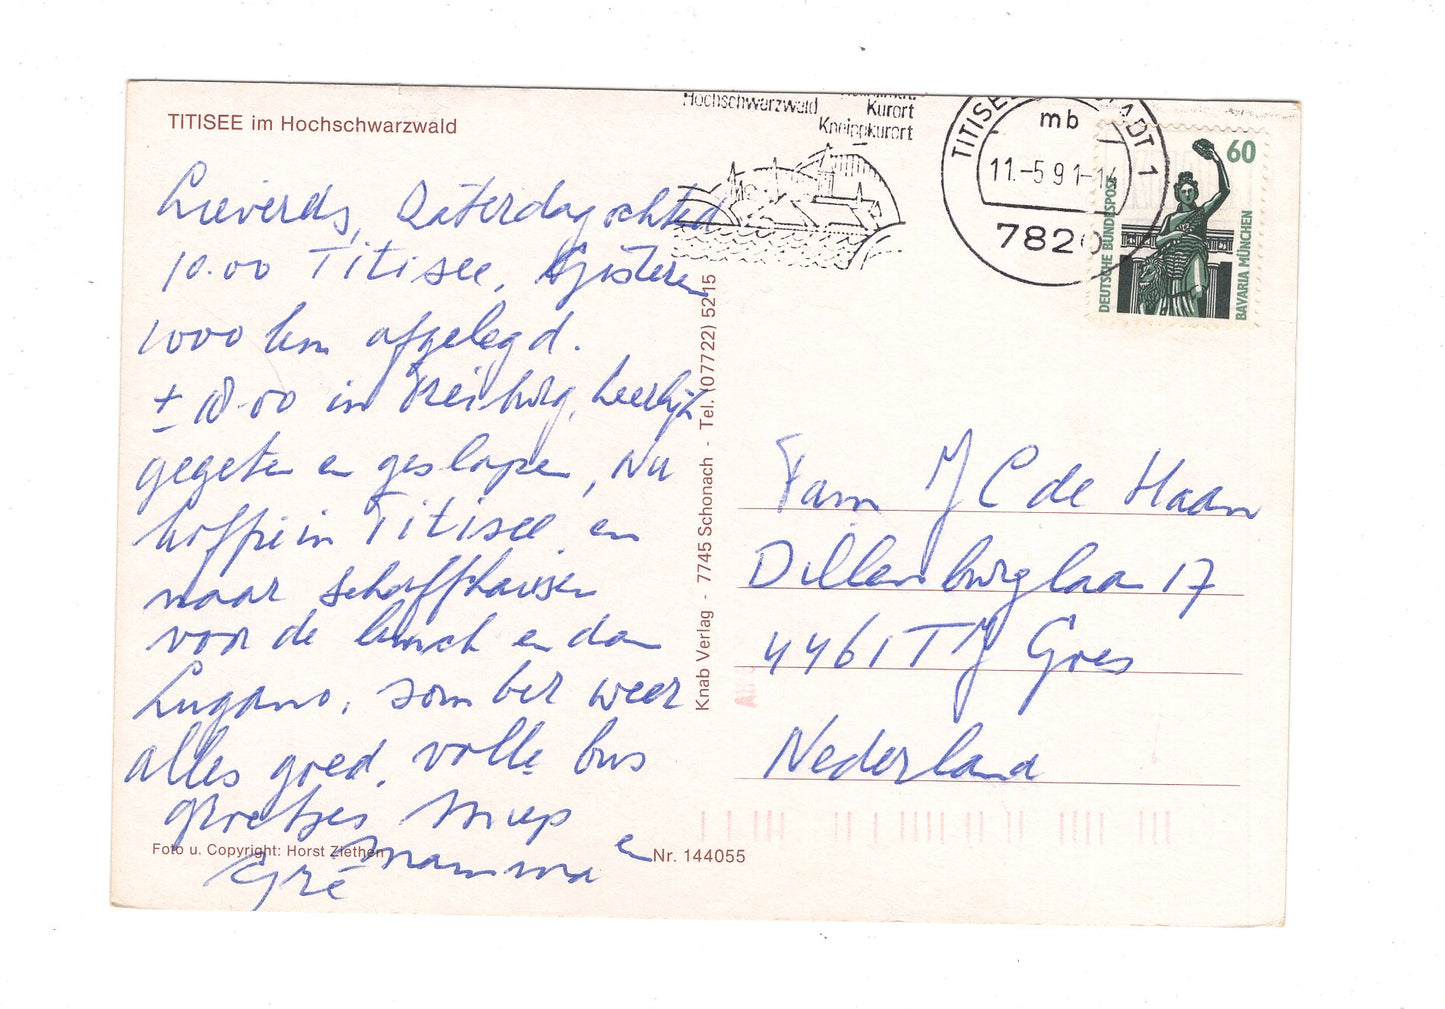 TITISEE im Hochschwarzwald
Lieverds, Zaterdagochted
10.00 Titisee, Gisteren
1000 km afgelegd.
± 18.00 in Freiburg, heerlijk
gegeten en geslapen, nu
koffie in Titisee en
naar Schaffhausen
voor de lunch en dan
Lugano, somber weer
alles goed, volle bus
groetjes Miep
Mamma en
Gré
Foto u. Copyright: Horst Ziethen
Nr. 144055
Knab Verlag - 7745 Schonach - Tel. (07722) 5215
Hochschwarzwald
Kurort
Kneippkurort
mb
11.-5.91-14
7820
60
DEUTSCHE BUNDESPOST
BAVARIA MÜNCHEN
Fam J C de Haan
Dillenburglaan 17
4461TJ Goes
Nederland